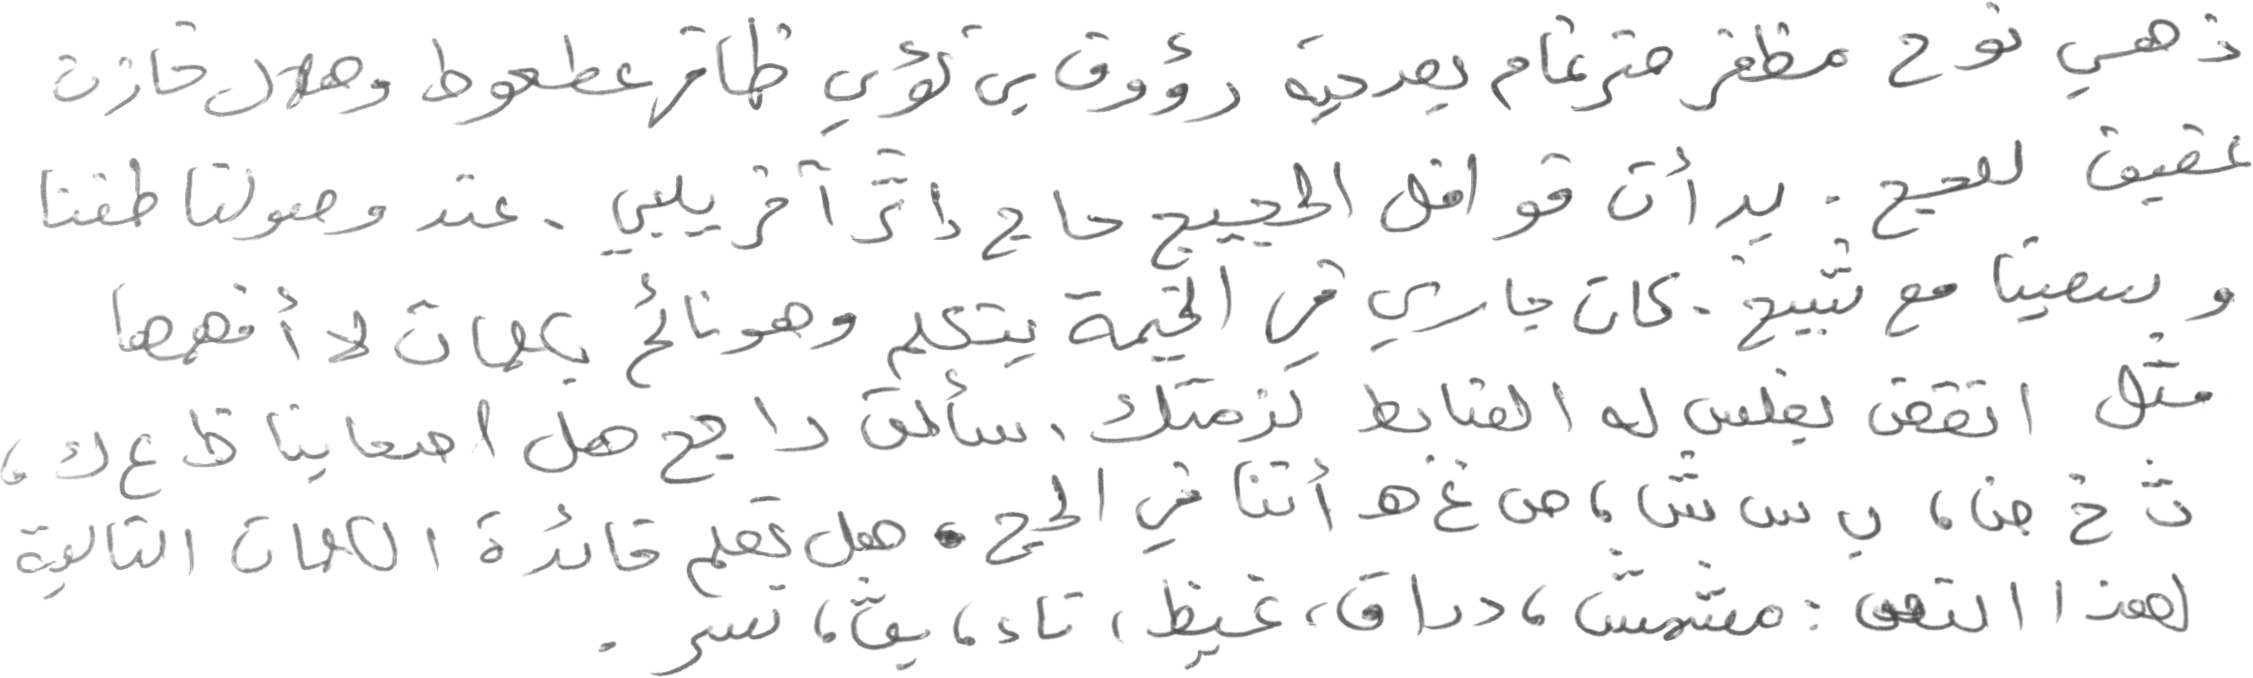 ذهب نوح مظفر ضرغام بصحبة رؤوف بن لؤي ظافر عطعوط وهلال خازن
عفيف للحج . بدأت قوافل الحجيج حاج إثر آخر يلبي . عند وصولنا طفنا
وسعينا مع شيخ . كان جاري في الخيمة يتكلم وهو نائم بكلمات لا أفهمها
مثل انقض يغلس له الضابط لزمتك . سألت راجح هل اصعاينا ظ ع ك ،
ث خ ض ، ب س ش ، ص غ هـ أتتنا في الحج . هل تعلم فائدة الكلمات التالية
لهذا النص : مشمش ، دراق ، غيظ ، تاء ، بث ، نسر .